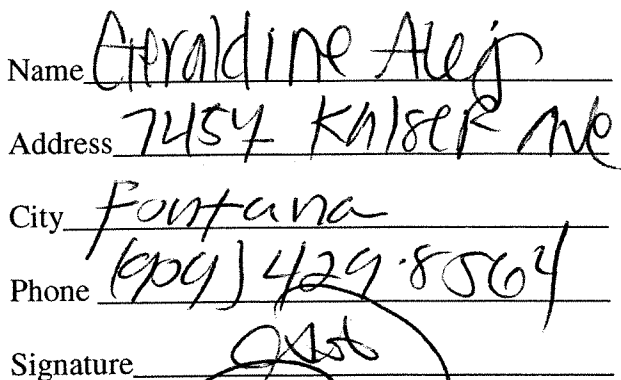 Name Geraldine
Address 7457 Kaiser Ave
City Fontana
Phone (909) 429-8564
Signature